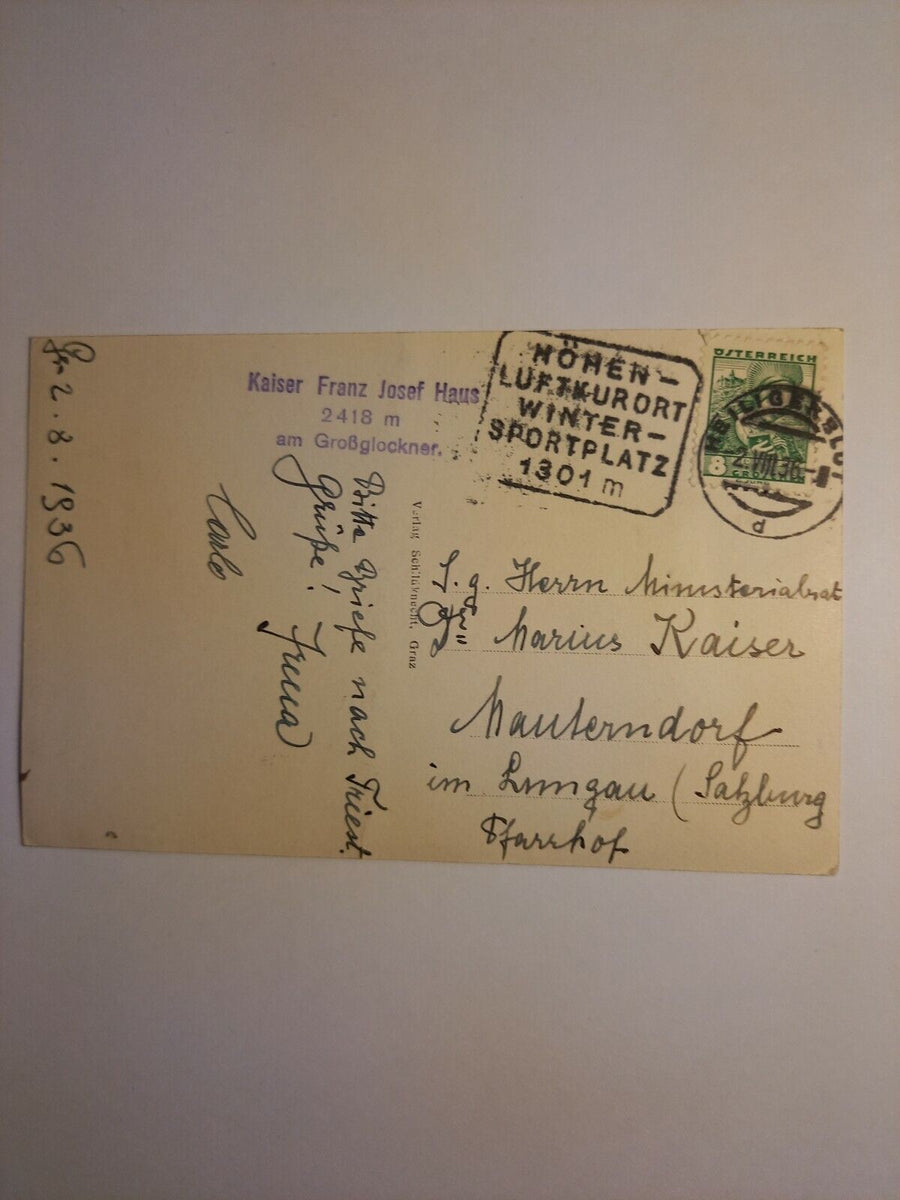 2. 8. 1936
Kaiser Franz Josef Haus
2418 m
am Großglockner.
Bitte Briefe nach Triest.
Grüße!
Carlo
Verlag Schildknecht, Graz
HÖHEN-
LUFTKURORT
WINTER-
SPORTPLATZ
1301 m
ÖSTERREICH
8
GROSCHEN
HEILIGENBLUT
2.VIII.36
S. g. Herrn Ministerialrat
Marius Kaiser
Mauterndorf
im Lungau (Salzburg
Pfarrhof